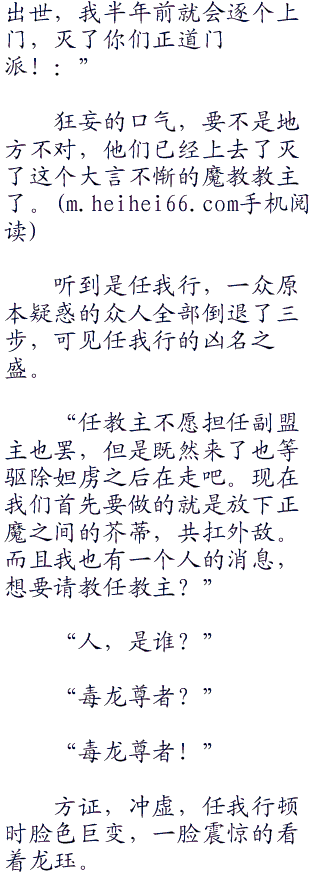 出世，我半年前就会逐个上
门，灭了你们正道门
派！：”
狂妄的口气，要不是地
方不对，他们已经上去了灭
了这个大言不惭的魔教教主
了。(m.heihei66.com手机阅
读)
听到是任我行，一众原
本疑惑的众人全部倒退了三
步，可见任我行的凶名之
盛。
“任教主不愿担任副盟
主也罢，但是既然来了也等
驱除妲虏之后在走吧。现在
我们首先要做的就是放下正
魔之间的芥蒂，共扛外敌。
而且我也有一个人的消息，
想要请教任教主？”
“人，是谁？”
“毒龙尊者？”
“毒龙尊者！”
方证，冲虚，任我行顿
时脸色巨变，一脸震惊的看
着龙珏。